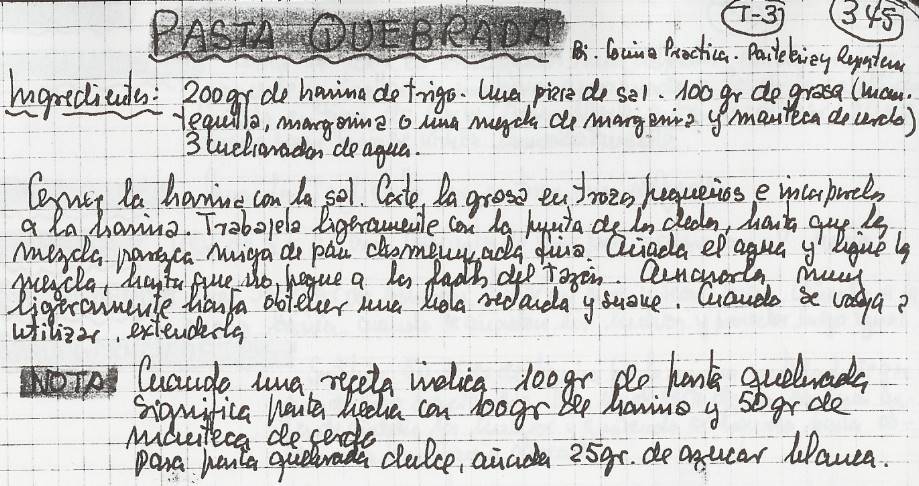 T-3 345
PASTA QUEBRADA
Bi. Cocina Practica. Pasteleria y Reposteria
Ingredientes: 200 gr de harina de trigo. Una pizca de sal. 100 gr de grasa (man-
tequilla, margarina o una mezcla de margarina y manteca de cerdo)
3 cucharadas de agua.
Cerner la harina con la sal. Corte la grasa en trozos pequeños e incorporela
a la harina. Trabajela ligeramente con la punta de los dedos, hasta que la
mezcla parezca miga de pan desmenuzada fina. Añada el agua y ligue la
mezcla, hasta que no pegue a los lados del tazón. Amasarla muy
ligeramente hasta obtener una bola redonda y suave. Cuando se vaya a
utilizar, extenderla
NOTA Cuando una receta indica 100 gr de pasta quebrada
significa pasta hecha con 100 gr de harina y 50 gr de
manteca de cerdo
para pasta quebrada dulce, añada 25 gr. de azucar blanca.